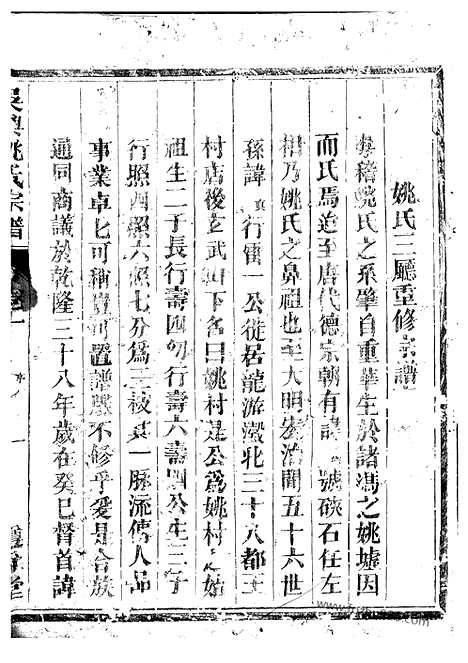 姚氏三廳重修宗譜
粵稽姚氏之系肇自重華生於諸馮之姚墟因
而氏焉迨至唐代德宗朝有諱 號硤石任左
相乃姚氏之鼻祖也至大明 治間五十六世
孫諱 行 一公徙居龍游 北三十八都王
村店後 武 山下名曰姚村是公為姚村 始
祖生二子長行壽四 行壽六壽四公生三子
行照四照六照七分為三 其一脉流傳人品
事業卓七可稱豈可置譜 不修乎爰是合族
通同商議於乾隆三十八年歲在癸巳督首諱
吳興姚氏宗譜 卷一
堂